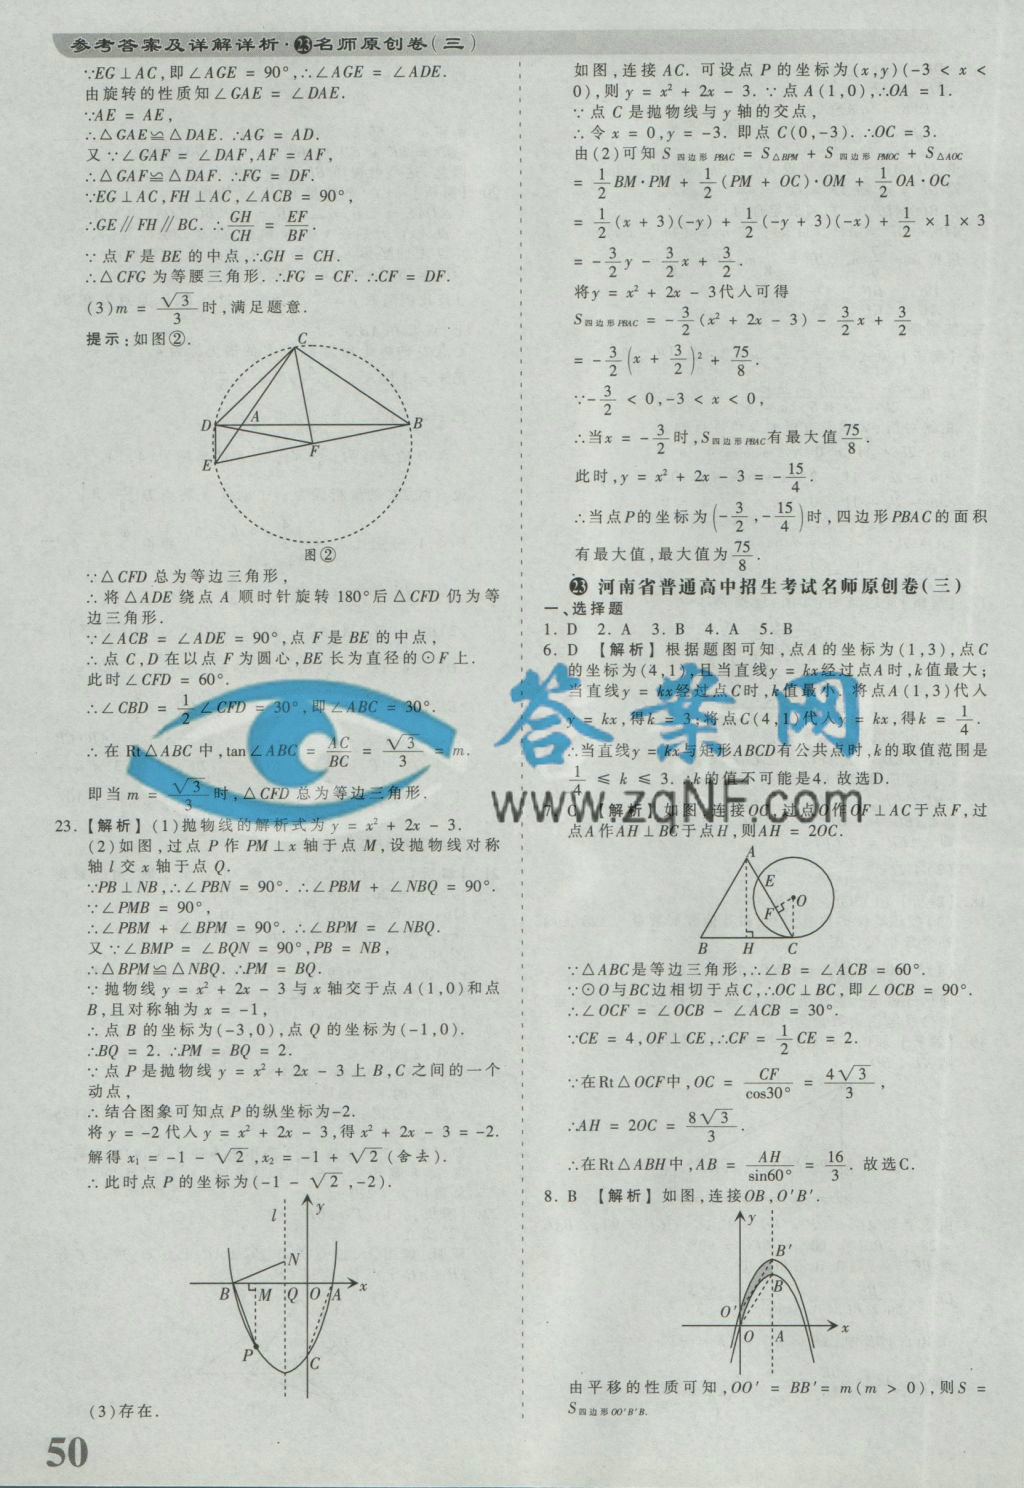 参考答案及详解详析·㉓名师原创卷(三)
∵EG⊥AC,即∠AGE = 90°,∴∠AGE = ∠ADE.
由旋转的性质知∠GAE = ∠DAE.
∵AE = AE,
∴△GAE≌△DAE. ∴AG = AD.
又∵∠GAF = ∠DAF,AF = AF,
∴△GAF≌△DAF. ∴FG = DF.
∵EG⊥AC,FH⊥AC,∠ACB = 90°,
∴GE∥FH∥BC. ∴GH/CH = EF/BF.
∵点 F 是 BE 的中点,∴GH = CH.
∴△CFG 为等腰三角形. ∴FG = CF. ∴CF = DF.
(3)m = √3/3 时,满足题意.
提示:如图②.
C
D
A
B
F
E
图②
∵△CFD 总为等边三角形,
∴将△ADE 绕点 A 顺时针旋转 180°后△CFD 仍为等
边三角形.
∵∠ACB = ∠ADE = 90°,点 F 是 BE 的中点,
∴点 C,D 在以点 F 为圆心,BE 长为直径的⊙F 上.
此时∠CFD = 60°.
∴∠CBD = 1/2∠CFD = 30°,即∠ABC = 30°.
∴在 Rt△ABC 中,tan∠ABC = AC/BC = √3/3 = m.
即当 m = √3/3 时,△CFD 总为等边三角形.
23.【解析】(1)抛物线的解析式为 y = x² + 2x - 3.
(2)如图,过点 P 作 PM⊥x 轴于点 M,设抛物线对称
轴 l 交 x 轴于点 Q.
∵PB⊥NB,∴∠PBN = 90°. ∴∠PBM + ∠NBQ = 90°.
∵∠PMB = 90°,
∴∠PBM + ∠BPM = 90°. ∴∠BPM = ∠NBQ.
又∵∠BMP = ∠BQN = 90°,PB = NB,
∴△BPM≌△NBQ. ∴PM = BQ.
∵抛物线 y = x² + 2x - 3 与 x 轴交于点 A(1,0)和点
B,且对称轴为 x = -1,
∴点 B 的坐标为(-3,0),点 Q 的坐标为(-1,0).
∴BQ = 2. ∴PM = BQ = 2.
∵点 P 是抛物线 y = x² + 2x - 3 上 B,C 之间的一个
动点,
∴结合图象可知点 P 的纵坐标为-2.
将 y = -2代入 y = x² + 2x - 3,得x² + 2x - 3 = -2.
解得 x₁ = -1 - √2,x₂ = -1 + √2(舍去).
∴此时点 P 的坐标为(-1 - √2,-2).
l
y
N
B
M
Q
O
A
x
P
C
(3)存在.
50
如图,连接 AC. 可设点 P 的坐标为(x,y)(-3 < x <
0),则 y = x² + 2x - 3. ∵点 A(1,0),∴OA = 1.
∵点 C 是抛物线与 y 轴的交点,
∴令 x = 0,y = -3. 即点 C(0,-3). ∴OC = 3.
由(2)可知 S四边形PBAC = S△BPM + S四边形PMOC + S△AOC
= 1/2 BM·PM + 1/2(PM + OC)·OM + 1/2 OA·OC
= 1/2(x + 3)(-y) + 1/2(-y + 3)(-x) + 1/2 × 1 × 3
= -3/2 y - 3/2 x + 3/2.
将y = x² + 2x - 3代入可得
S四边形PBAC = -3/2(x² + 2x - 3) - 3/2 x + 3/2
= -3/2(x + 3/2)² + 75/8.
∵-3/2 < 0,-3 < x < 0,
∴当x = -3/2时,S四边形PBAC有最大值75/8.
此时,y = x² + 2x - 3 = -15/4.
∴当点P的坐标为(-3/2,-15/4)时,四边形PBAC的面积
有最大值,最大值为75/8.
㉓ 河南省普通高中招生考试名师原创卷(三)
一、选择题
1. D 2. A 3. B 4. A 5. B
6. D 【解析】根据题图可知,点A的坐标为(1,3),点C
的坐标为(4,1),且当直线y = kx经过点A时,k值最大;
当直线y = kx经过点C时,k值最小. 将点A(1,3)代入
y = kx,得k = 3;将点C(4,1)代入y = kx,得k = 1/4.
∴当直线y = kx与矩形ABCD有公共点时,k的取值范围是
1/4 ≤ k ≤ 3. ∴k的值不可能是4. 故选D.
7. C 【解析】如图,连接OC,过点O作OF⊥AC于点F,过
点A作AH⊥BC于点H,则AH = 2OC.
A
E
F
O
B
H
C
∵△ABC是等边三角形,∴∠B = ∠ACB = 60°.
∵⊙O与BC边相切于点C,∴OC⊥BC,即∠OCB = 90°.
∴∠OCF = ∠OCB - ∠ACB = 30°.
∵CE = 4,OF⊥CE,∴CF = 1/2 CE = 2.
∴在Rt△OCF中,OC = CF/cos30° = 4√3/3,
∴AH = 2OC = 8√3/3.
∴在Rt△ABH中,AB = AH/sin60° = 16/3. 故选C.
8. B 【解析】如图,连接OB,O′B′.
y
B′
B
O′
O
A
x
由平移的性质可知,OO′ = BB′= m(m > 0),则S =
S四边形OO′B′B.
答案网
www.zqNF.com